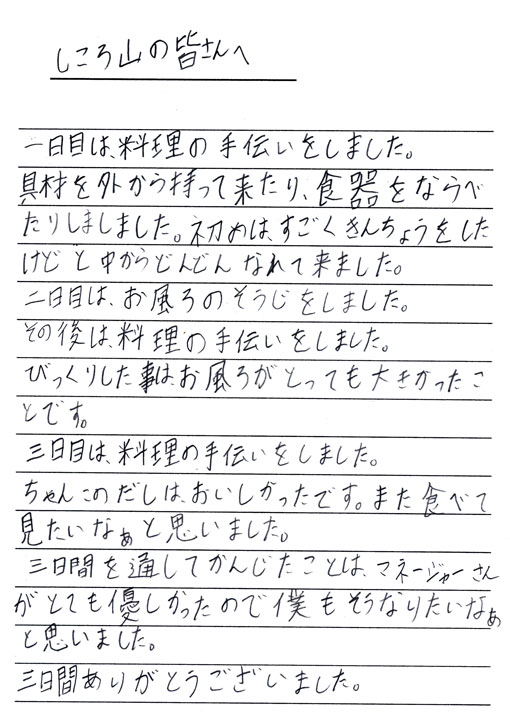 しころ山の皆さんへ
一日目は、料理の手伝いをしました。
具材を外から持って来たり、食器をならべ
たりしましました。初めは、すごくきんちょうをした
けどと中からどんどんなれて来ました。
二日目は、お風ろのそうじをしました。
その後は、料理の手伝いをしました。
びっくりした事はお風ろがとっても大きかったこ
とです。
三日目は、料理の手伝いをしました。
ちゃんこのだしは、おいしかったです。また食べて
見たいなぁと思いました。
三日間を通してかんじたことは、マネージャーさん
がとても優しかったので僕もそうなりたいなぁ
と思いました。
三日間ありがとうございました。